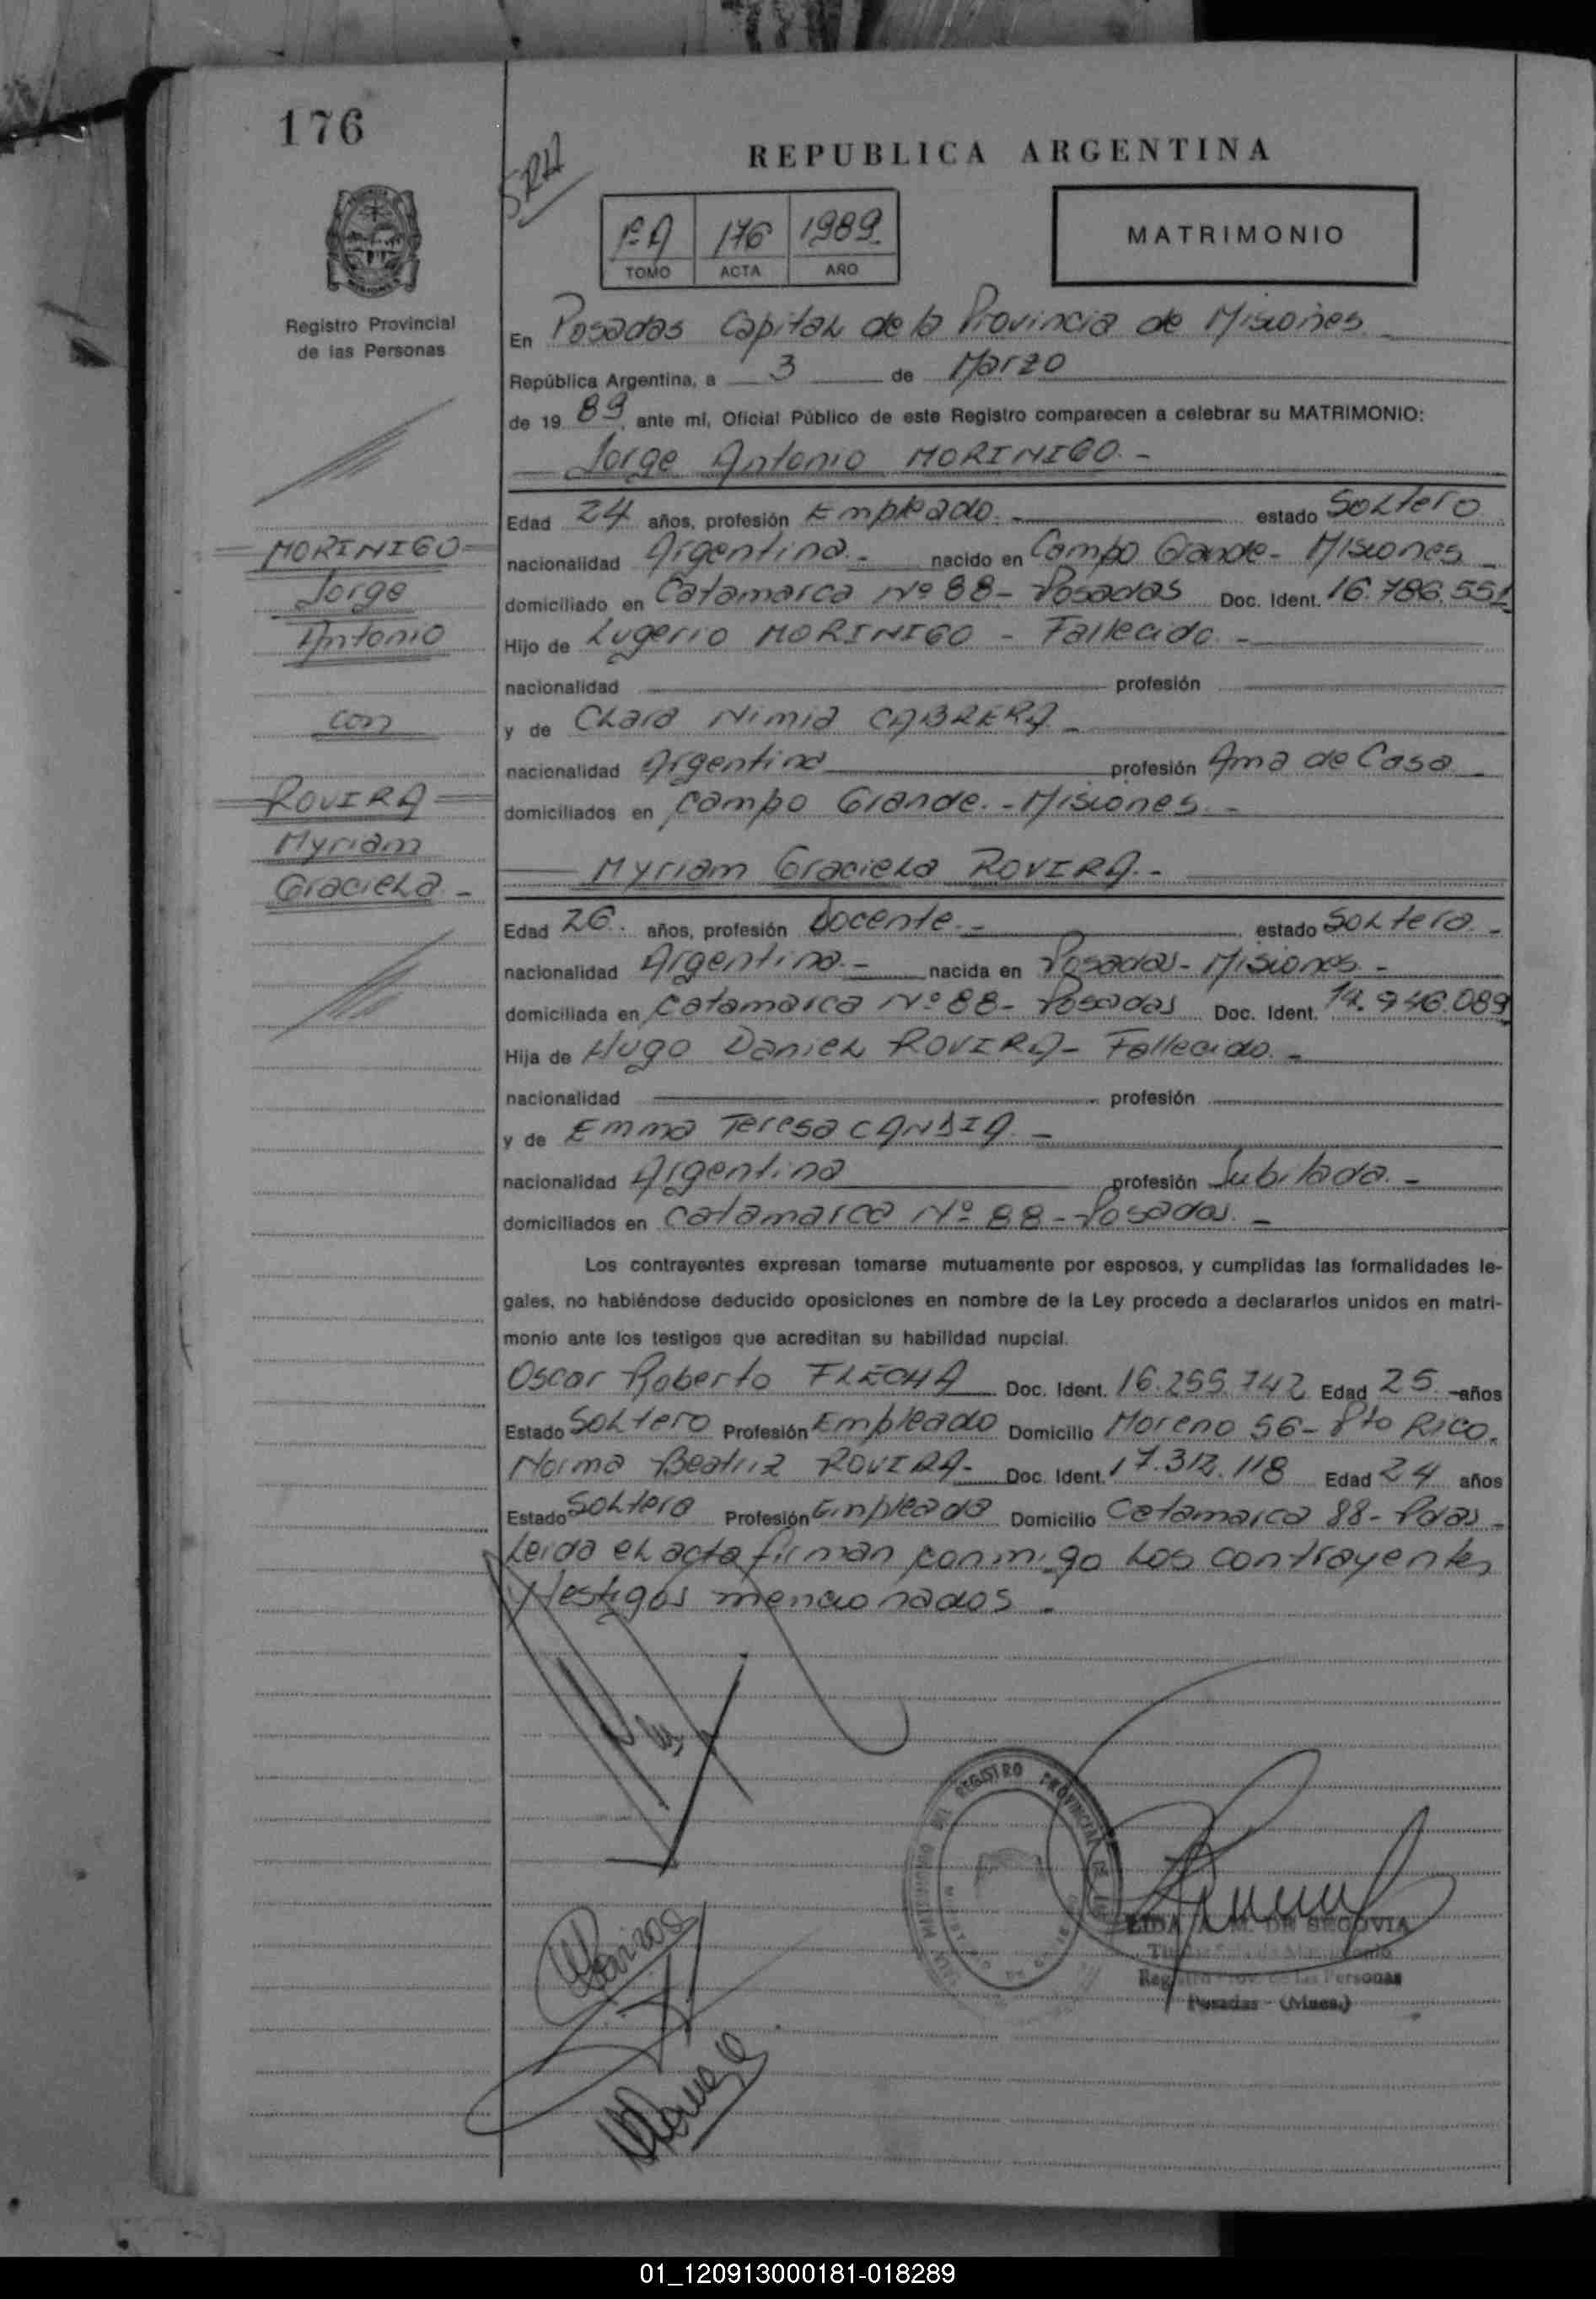 176
SRA
REPUBLICA ARGENTINA
1º A 176 1989
TOMO ACTA AÑO
MATRIMONIO
Registro Provincial
de las Personas
En Posadas Capital de la Provincia de Misiones
República Argentina, a 3 de Marzo
de 19 89 ante mí, Oficial Público de este Registro comparecen a celebrar su MATRIMONIO:
Jorge Antonio MORINIGO.-
Edad 24 años, profesión Empleado.- estado Soltero
nacionalidad Argentina.- nacido en Campo Grande- Misiones
domiciliado en Catamarca Nº 88- Posadas Doc. Ident. 16.786.551
Hijo de Lugerio MORINIGO - Fallecido.-
nacionalidad profesión
y de Clara Nimia CABRERA -
nacionalidad Argentina profesión Ama de Casa
domiciliados en Campo Grande.- Misiones.-
MORINIGO
Jorge
Antonio
con
ROVIRA
Myriam
Graciela -
Myriam Graciela ROVIRA.-
Edad 26. años, profesión Docente.- estado Soltera.-
nacionalidad Argentina.- nacida en Posadas- Misiones.-
domiciliada en Catamarca Nº 88- Posadas Doc. Ident. 14.946.089
Hija de Hugo Daniel ROVIRA- Fallecido.-
nacionalidad profesión
y de Emma Teresa CANDIA.-
nacionalidad Argentina profesión Jubilada.-
domiciliados en Catamarca Nº 88- Posadas.-
Los contrayentes expresan tomarse mutuamente por esposos, y cumplidas las formalidades le-
gales, no habiéndose deducido oposiciones en nombre de la Ley procedo a declararlos unidos en matri-
monio ante los testigos que acreditan su habilidad nupcial.
Oscar Roberto FLECHA Doc. Ident. 16.255.742 Edad 25 años
Estado Soltero Profesión Empleado Domicilio Moreno 56- Pto Rico.
Norma Beatriz ROVIRA- Doc. Ident. 17.312.118 Edad 24 años
Estado Soltera Profesión Empleada Domicilio Catamarca 88- Pdas.-
Leida el acta firman conmigo los contrayentes
y testigos mencionados.-
REGISTRO PROVINCIAL DE LAS
LIDA A. M. DE SEGOVIA
Registro Prov. de las Personas
Posadas - (Mnes.)
01_120913000181-018289